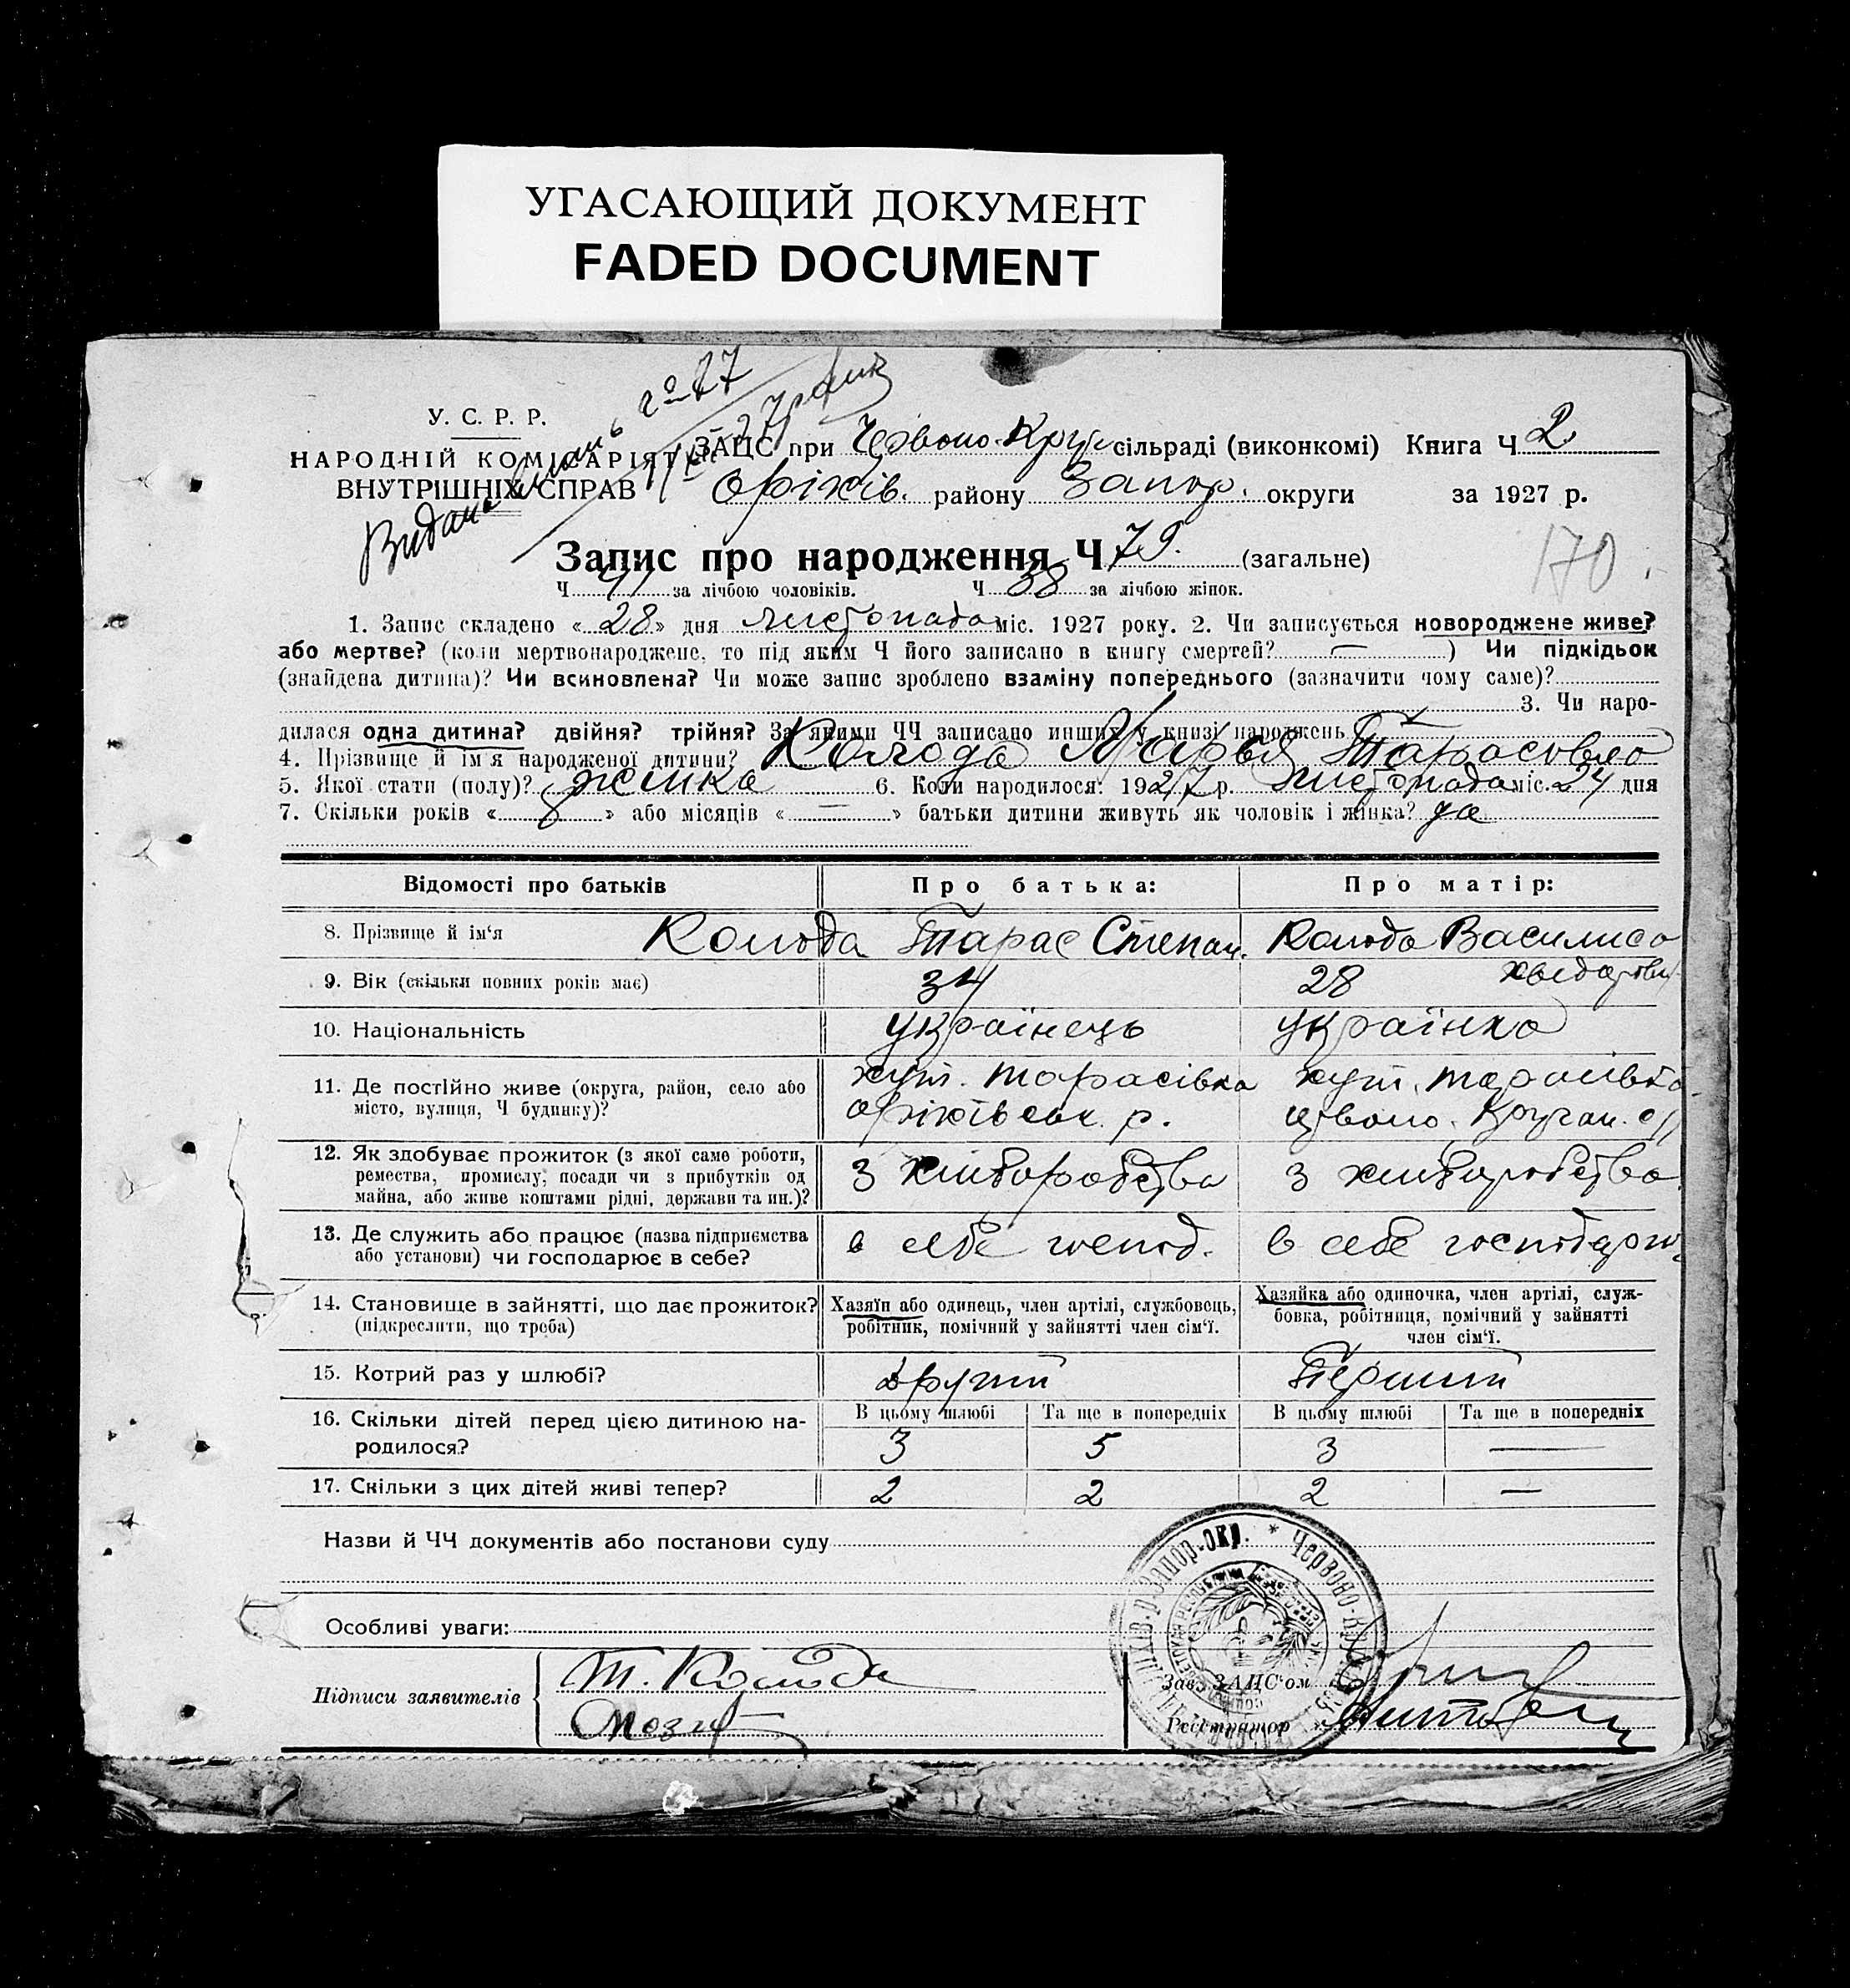 УГАСАЮЩИЙ ДОКУМЕНТ
FADED DOCUMENT
У. С. Р. Р.
НАРОДНІЙ КОМІСАРІЯТ
ВНУТРІШНІХ СПРАВ
Видана
ЗАЦС при Червоно-Круг сільраді (виконкомі) Книга Ч 2
Оріхів. району Запор. округи за 1927 р.
Запис про народження Ч 79. (загальне)
170
Ч 41 за лічбою чоловіків. Ч 38 за лічбою жінок.
1. Запис складено « 28 » дня листопада міс. 1927 року. 2. Чи записується новороджене живе?
або мертве? (коли мертвонароджене, то під яким Ч його записано в книгу смертей? — ) Чи підкідьок
(знайдена дитина)? Чи всиновлена? Чи може запис зроблено взаміну попереднього (зазначити чому саме)?
3. Чи наро-
дилася одна дитина? двійня? трійня? За якими ЧЧ записано инших у книзі народжень
4. Прізвище й ім'я народженої дитини? Колода Марья Тарасовна
5. Якої стати (полу)? жінка 6. Коли народилося: 1927 р. листопада міс. 24 дня
7. Скільки років « 8 » або місяців « — » батьки дитини живуть як чоловік і жінка? да
Відомості про батьків Про батька: Про матір:
8. Прізвище й ім'я Колода Тарас Степан. Колода Василиса
Хведоровн
9. Вік (скільки повних років має) 34 28
10. Національність українець українка
11. Де постійно живе (округа, район, село або хут. Тарасівка хут. Тарасівка
місто, вулиця, Ч будинку)? Оріхівськ. р.
12. Як здобуває прожиток (з якої саме роботи,
ремества, промислу, посади чи з прибутків од з хліборобства з хліборобства
майна, або живе коштами рідні, держави та ин.)?
13. Де служить або працює (назва підприємства в себе господ. в себе господарю
або установи) чи господарює в себе?
14. Становище в зайнятті, що дає прожиток? Хазяїн або одинець, член артілі, службовець, Хазяйка або одиночка, член артілі, служ-
(підкреслити, що треба) робітник, помічний у зайнятті член сім'ї. бовка, робітниця, помічний у зайнятті
член сім'ї.
15. Котрий раз у шлюбі? другий Перший
16. Скільки дітей перед цією дитиною на- В цьому шлюбі Та ще в попередніх В цьому шлюбі Та ще в попередніх
родилося? 3 5 3 —
17. Скільки з цих дітей живі тепер? 2 2 2 —
Назви й ЧЧ документів або постанови суду
Особливі уваги:
Підписи заявителів Т. Колода
Зав. ЗАЦС'ом
Реєстратор